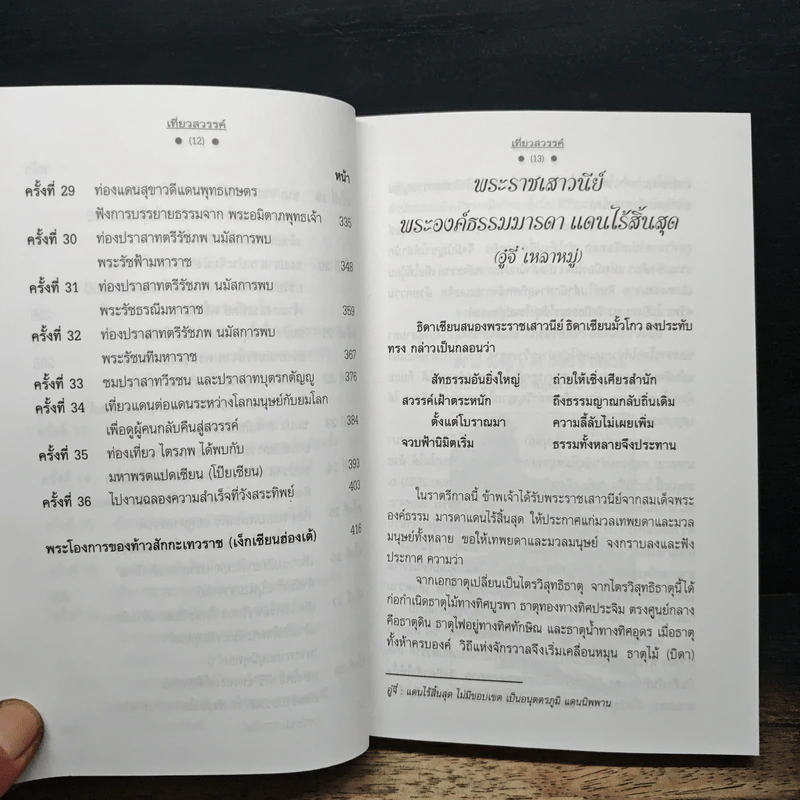 เที่ยวสวรรค์
● (12) ●
หน้า
ครั้งที่ 29 ท่องแดนสุขาวดีแดนพุทธเกษตร
ฟังการบรรยายธรรมจาก พระอมิตาภพุทธเจ้า 335
ครั้งที่ 30 ท่องปราสาทตรีรัชภพ นมัสการพบ
พระรัชฟ้ามหาราช 348
ครั้งที่ 31 ท่องปราสาทตรีรัชภพ นมัสการพบ
พระรัชธรณีมหาราช 359
ครั้งที่ 32 ท่องปราสาทตรีรัชภพ นมัสการพบ
พระรัชนทีมหาราช 367
ครั้งที่ 33 ชมปราสาทวีรชน และปราสาทบุตรกตัญญู 376
ครั้งที่ 34 เที่ยวแดนต่อแดนระหว่างโลกมนุษย์กับยมโลก
เพื่อดูผู้คนกลับคืนสู่สวรรค์ 384
ครั้งที่ 35 ท่องเที่ยว ไตรภพ ได้พบกับ
มหาพรตแปดเซียน (โป๊ยเซียน) 393
ครั้งที่ 36 ไปงานฉลองความสำเร็จที่วังสระทิพย์ 403
พระโองการของท้าวสักกะเทวราช (เง็กเซียนฮ่องเต้) 416
เที่ยวสวรรค์
● (13) ●
พระราชเสาวนีย์
พระองค์ธรรมมารดา แดนไร้สิ้นสุด
(อู๋จี๋ เหลาหมู่)
ธิดาเซียนสนองพระราชเสาวนีย์ ธิดาเซียนมั้วโกว ลงประทับ
ทรง กล่าวเป็นกลอนว่า
สัทธรรมอันยิ่งใหญ่ ถ่ายให้เชิ่งเศียรสำนัก
สวรรค์เฝ้าตระหนัก ถึงธรรมญาณกลับถิ่นเดิม
ตั้งแต่โบราณมา ความลี้ลับไม่เผยเพิ่ม
จวบฟ้านิมิตเริ่ม ธรรมทั้งหลายจึงประทาน
ในราตรีกาลนี้ ข้าพเจ้าได้รับพระราชเสาวนีย์จากสมเด็จพระ
องค์ธรรม มารดาแดนไร้สิ้นสุด ให้ประกาศแก่มวลเทพยดาและมวล
มนุษย์ทั้งหลาย ขอให้เทพยดาและมวลมนุษย์ จงกราบลงและฟัง
ประกาศ ความว่า
จากเอกธาตุเปลี่ยนเป็นไตรวิสุทธิธาตุ จากไตรวิสุทธิธาตุนี้ได้
ก่อกำเนิดธาตุไม้ทางทิศบูรพา ธาตุทองทางทิศประจิม ตรงศูนย์กลาง
คือธาตุดิน ธาตุไฟอยู่ทางทิศทักษิณ และธาตุน้ำทางทิศอุดร เมื่อธาตุ
ทั้งห้าครบองค์ วิถีแห่งจักรวาลจึงเริ่มเคลื่อนหมุน ธาตุไม้ (บิดา)
อู๋จี๋ : แดนไร้สิ้นสุด ไม่มีขอบเขต เป็นอนุตตรภูมิ แดนนิพพาน